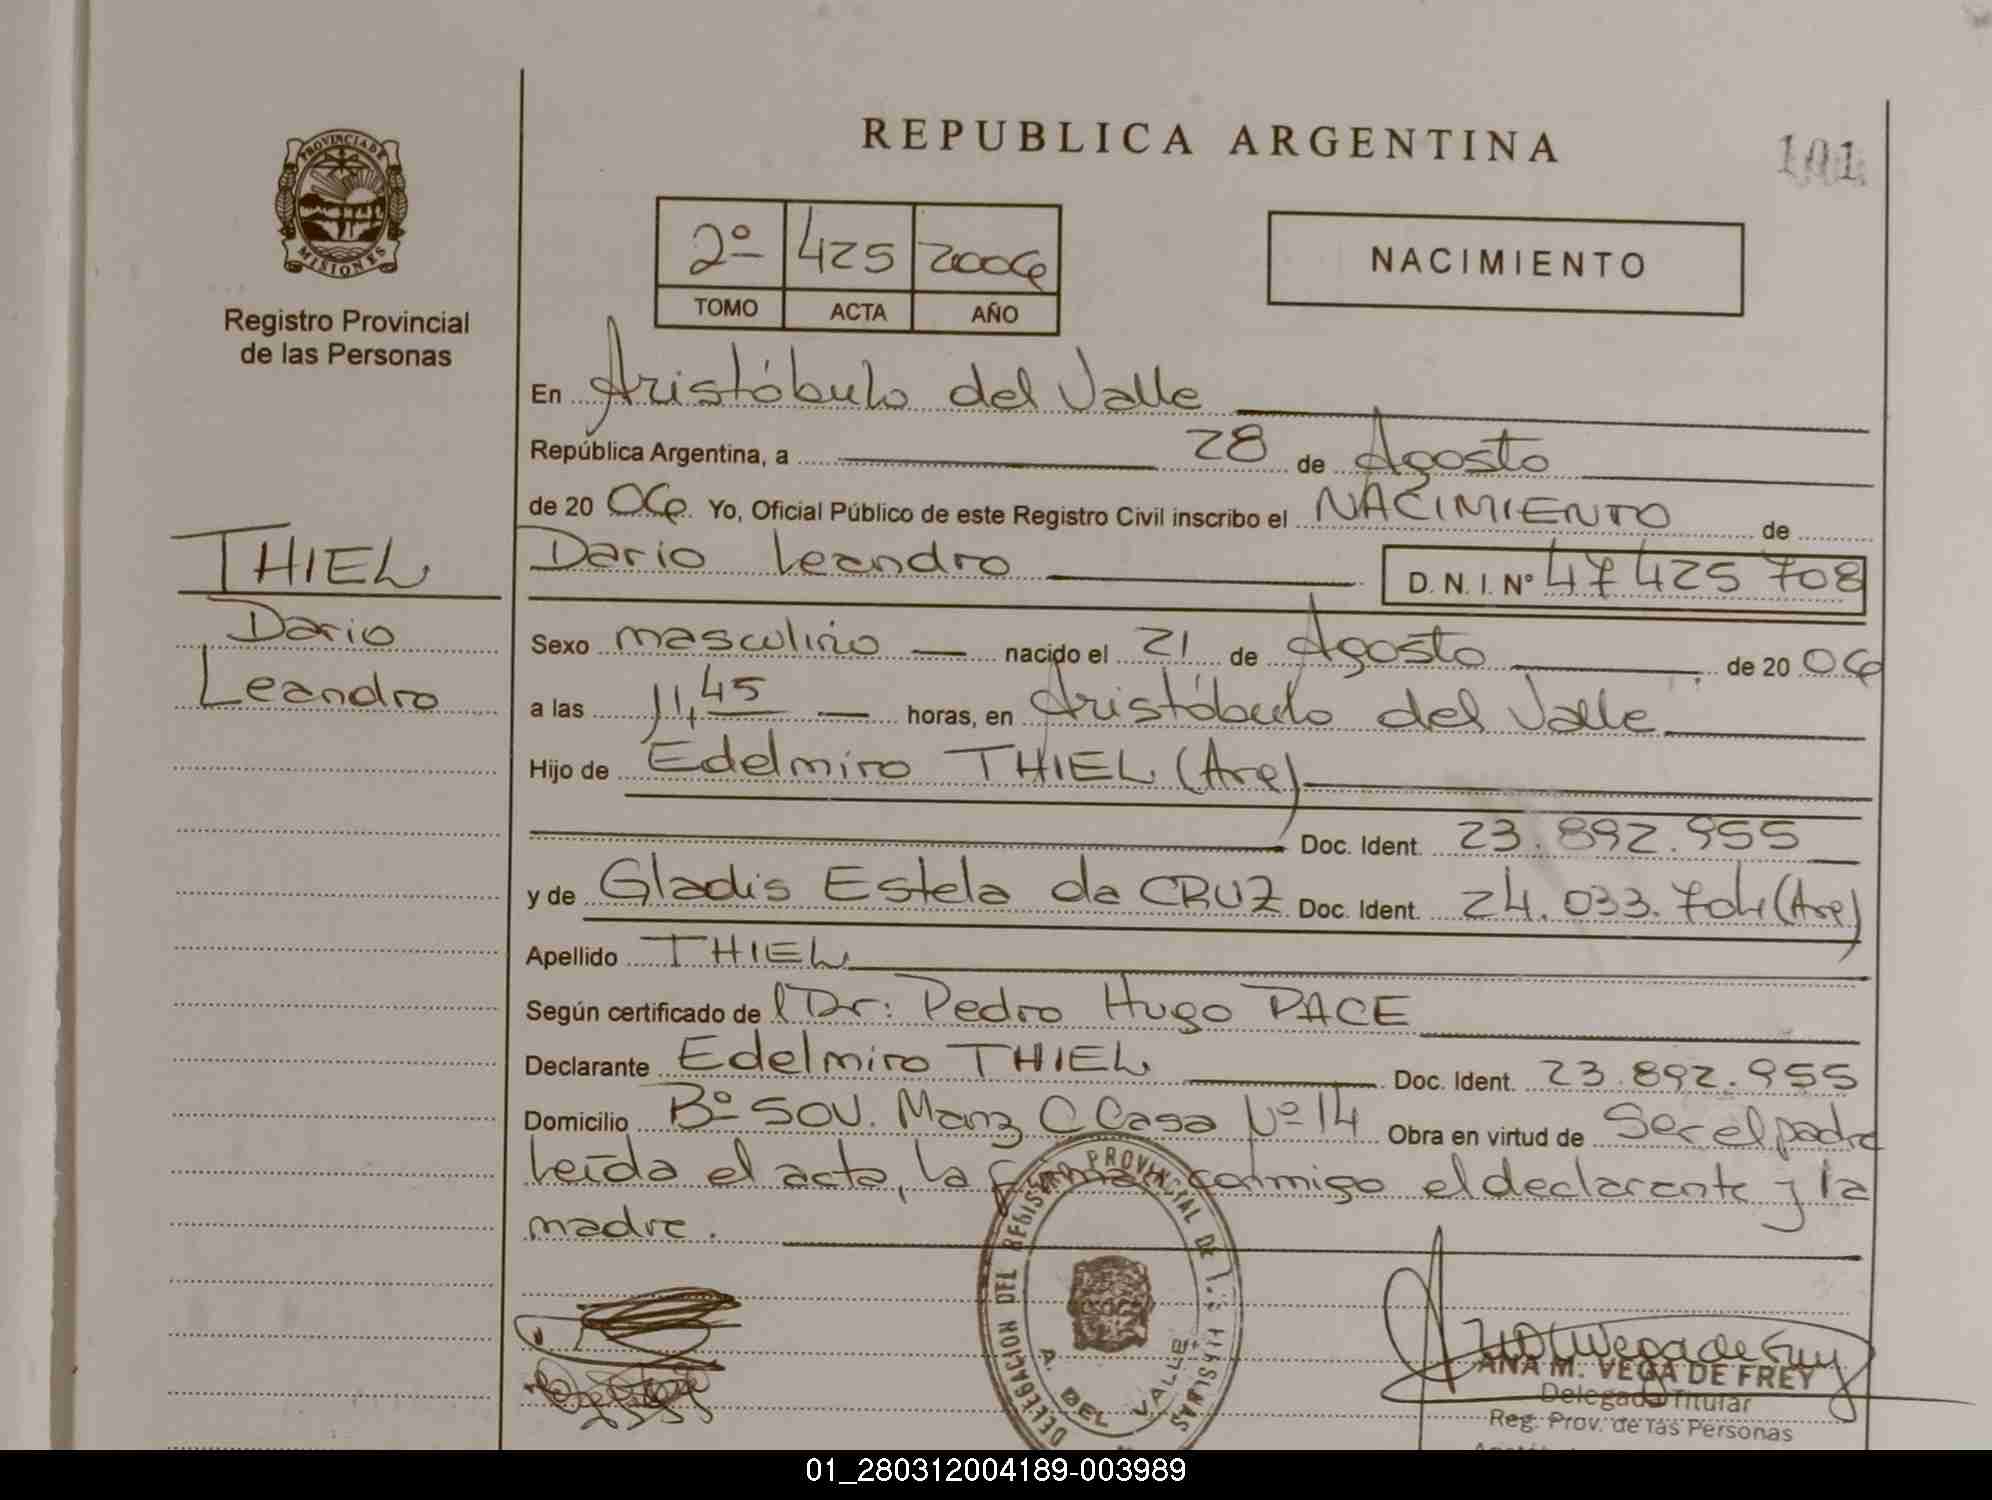 REPUBLICA ARGENTINA
101
PROVINCIA DE
MISIONES
Registro Provincial
de las Personas
2º 425 2006
TOMO ACTA AÑO
NACIMIENTO
En Aristóbulo del Valle
República Argentina, a 28 de Agosto
de 20 06 Yo, Oficial Público de este Registro Civil inscribo el NACIMIENTO de
THIEL
Dario
Leandro
Dario Leandro D. N. I. Nº 47 425 708
Sexo masculino nacido el 21 de Agosto de 20 06
a las 11,45 horas, en Aristóbulo del Valle
Hijo de Edelmiro THIEL (Arg)
Doc. Ident. 23.892.955
y de Gladis Estela da CRUZ Doc. Ident. 24.033.704 (Arg)
Apellido THIEL
Según certificado de l Dr: Pedro Hugo PACE
Declarante Edelmiro THIEL Doc. Ident. 23.892.955
Domicilio Bº SOV. Manz C Casa Nº 14 Obra en virtud de Ser el padre
Leída el acta, la firma conmigo el declarante y la
madre.
DELEGACION DEL REGISTRO PROVINCIAL DE LAS PERSONAS
A. DEL VALLE
ANA M. VEGA DE FREY
Delegada Titular
Reg. Prov. de las Personas
01_280312004189-003989